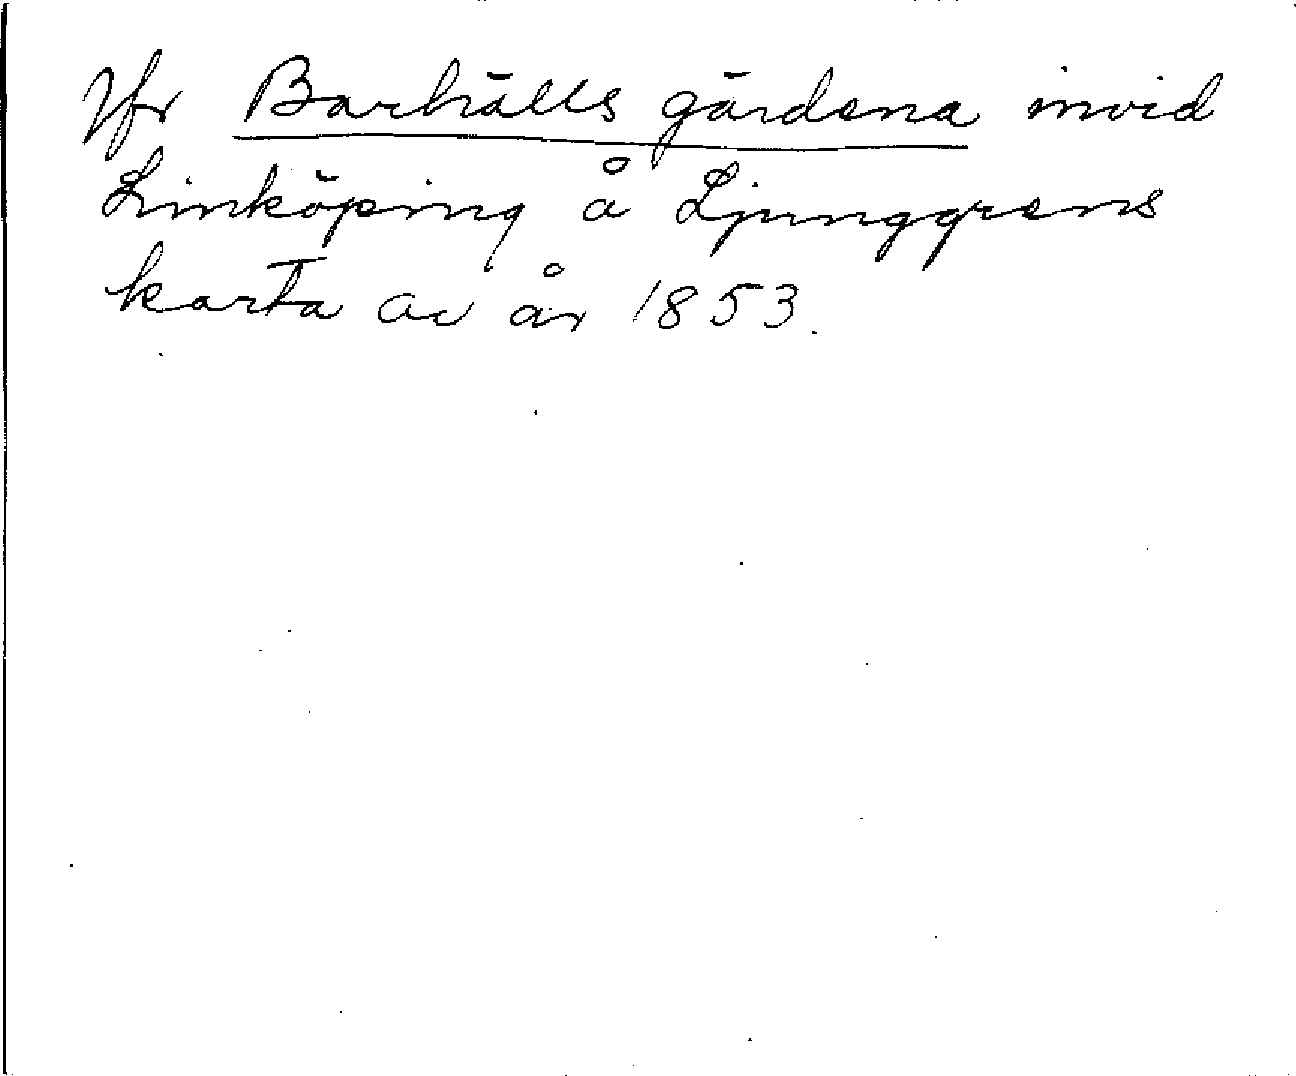 Jfr Barhälls gärdena invid
Linköping å Ljunggrens
karta av år 1853.